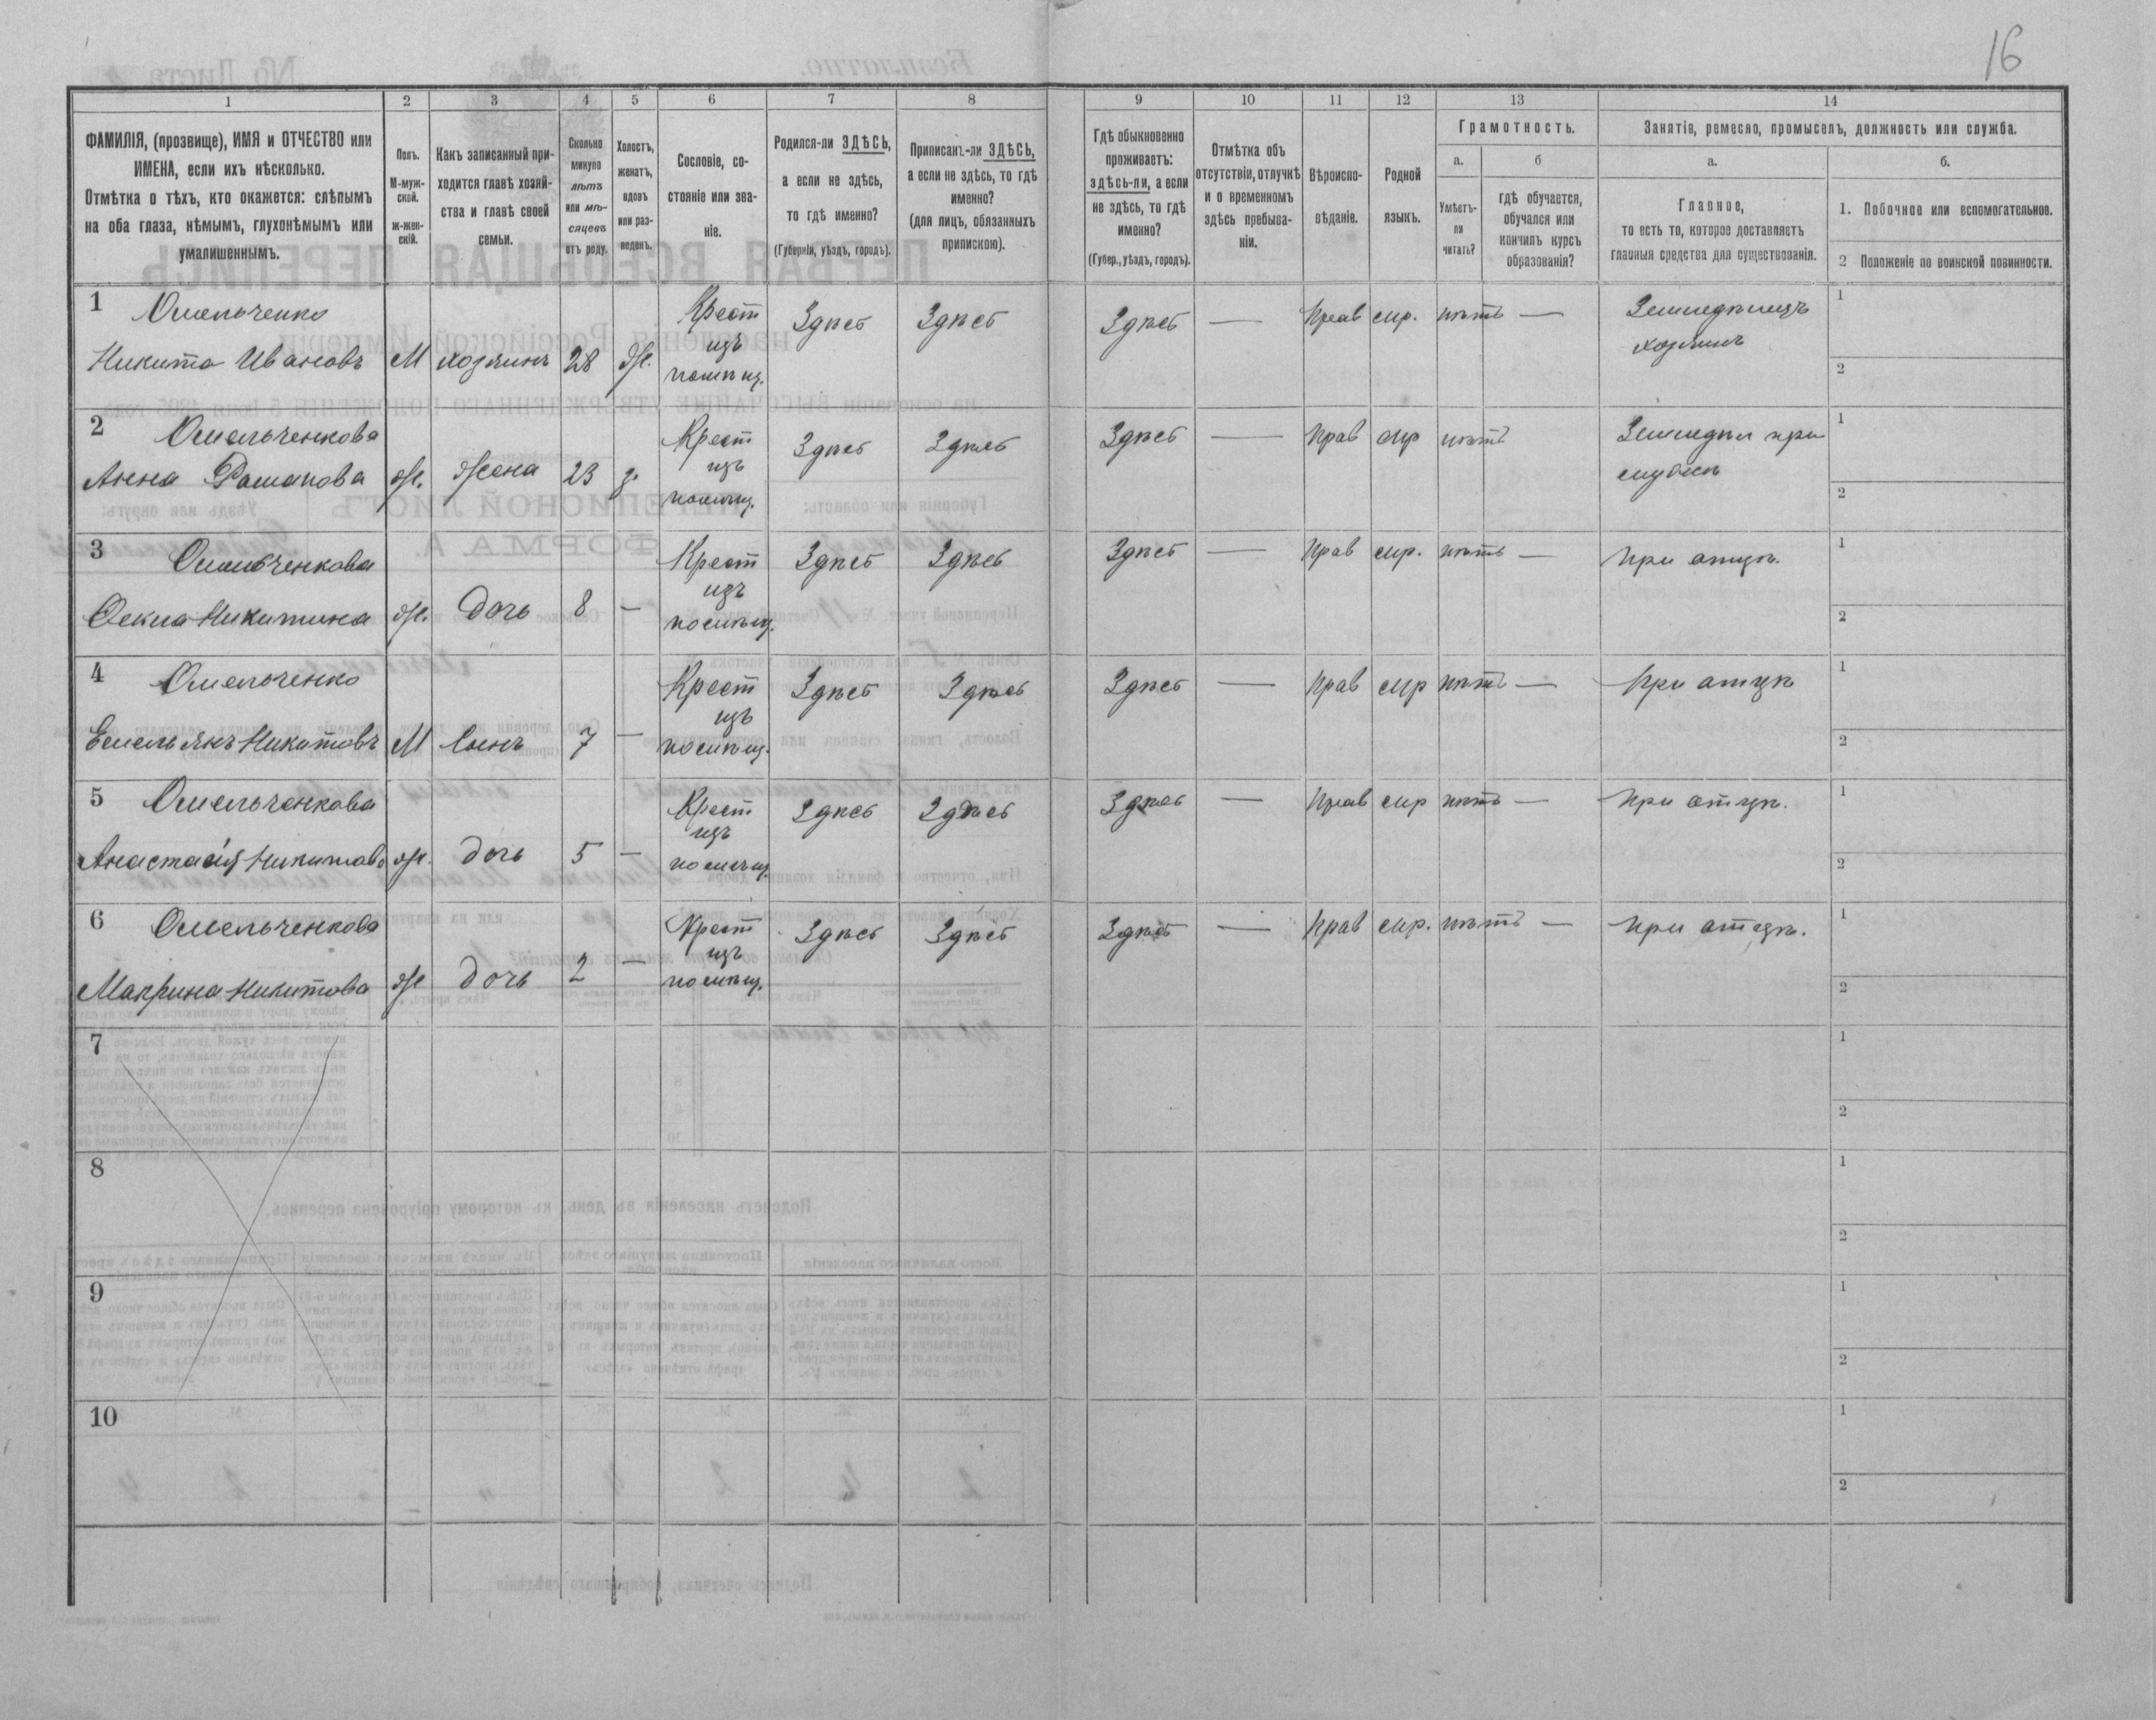 16
1
2
3
4
5
6
7
8
9
10
11
12
13
14
ФАМИЛІЯ, (прозвище), ИМЯ и ОТЧЕСТВО или
ИМЕНА, если ихъ нѣсколько.
Отмѣтка о тѣхъ, кто окажется: слѣпымъ
на оба глаза, нѣмымъ, глухонѣмымъ или
умалишеннымъ.
Полъ.
М-муж-
ской.
ж-жен-
скій.
Какъ записанный при-
ходится главѣ хозяй-
ства и главѣ своей
семьи.
Сколько
минуло
лѣтъ
или мѣ-
сяцевъ
отъ роду.
Холостъ,
женатъ,
вдовъ
или раз-
веденъ.
Сословіе, со-
стояніе или зва-
ніе.
Родился-ли ЗДѢСЬ,
а если не здѣсь,
то гдѣ именно?
(Губернія, уѣздъ, городъ).
Приписанъ-ли ЗДѢСЬ,
а если не здѣсь, то гдѣ
именно?
(для лицъ, обязанныхъ
припискою).
Гдѣ обыкновенно
проживаетъ:
здѣсь-ли, а если
не здѣсь, то гдѣ
именно?
(Губер., уѣздъ, городъ).
Отмѣтка объ
отсутствіи, отлучкѣ
и о временномъ
здѣсь пребыва-
ніи.
Вѣроиспо-
вѣданіе.
Родной
языкъ.
Грамотность.
а.
Умѣетъ-
ли
читать?
б
гдѣ обучается,
обучался или
кончилъ курсъ
образованія?
Занятіе, ремесло, промыселъ, должность или служба.
а.
Главное,
то есть то, которое доставляетъ
главныя средства для существованія.
б.
1. Побочное или вспомогательное.
2 Положеніе по воинской повинности.
1 Омельченко
Никита Ивановъ М хозяинъ 28 ж.
Крест
изъ
помѣщ.
Здѣсь Здѣсь Здѣсь — Прав мир. нѣтъ —
Земледѣлецъ
хозяинъ
1
2
2 Омельченкова
Анна Романова ж. жена 23 з.
Крест
изъ
помѣщ.
Здѣсь Здѣсь Здѣсь — Прав мир нѣтъ
Земледѣл при
мужѣ
1
2
3 Омельченкова
Никитина ж. дочь 8 —
Крест
изъ
помѣщ.
Здѣсь Здѣсь Здѣсь — Прав мир. нѣтъ — При отцѣ.
1
2
4 Омельченко
Емельянъ Никитовъ М Сынъ 7 —
Крест
изъ
помѣщ.
Здѣсь Здѣсь Здѣсь — Прав мир нѣтъ — При отцѣ
1
2
5 Омельченкова
Анастасія Никитова ж. дочь 5 —
Крест
изъ
помѣщ.
Здѣсь Здѣсь Здѣсь — Прав мир нѣтъ — При отцѣ.
1
2
6 Омельченкова
Макрина Никитова ж дочь 2 —
Крест
изъ
помѣщ.
Здѣсь Здѣсь Здѣсь — Прав мир. нѣтъ — При отцѣ.
1
2
7
1
2
8
1
2
9
1
2
10
1
2